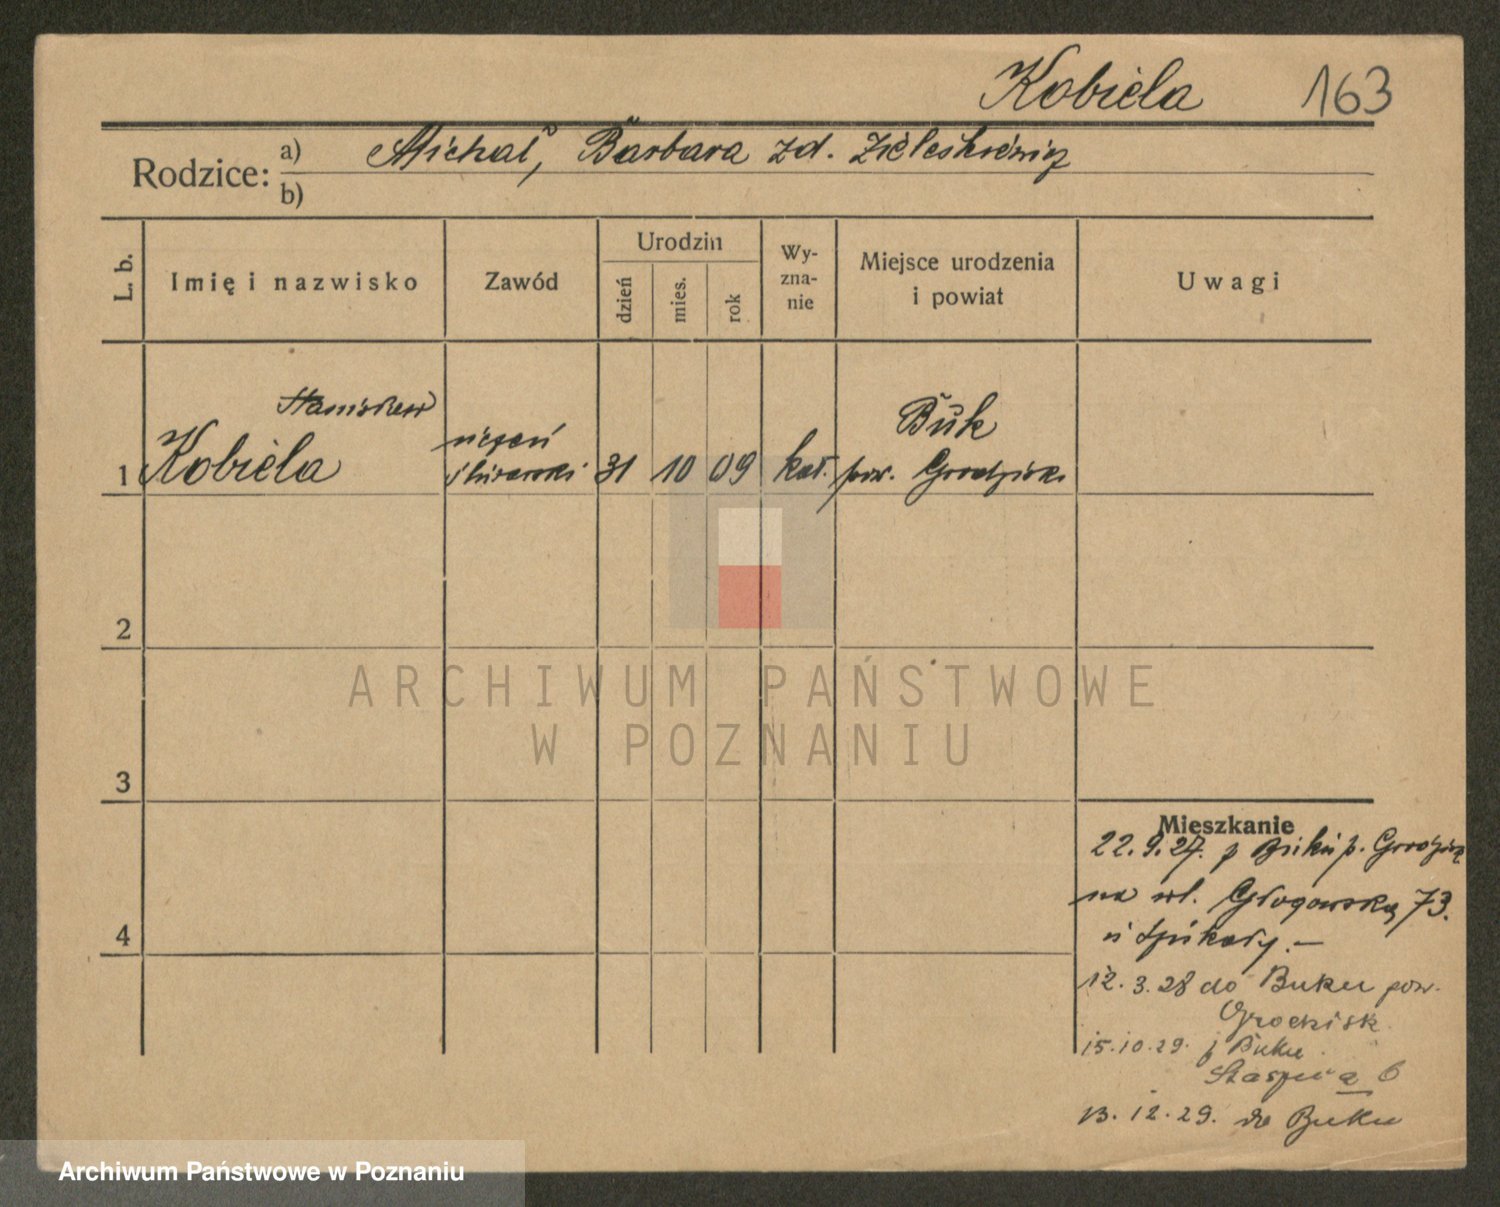 Kobiela 163
Rodzice: a) Michał, Barbara zd.
b)
L. b.
Imię i nazwisko
Zawód
Urodzin
dzień
mies.
rok
Wy-
zna-
nie
Miejsce urodzenia
i powiat
Uwagi
Stanisław
1 Kobiela
uczeń
ślusarski
31 10 09 kat.
Buk
pow. Grodzisk
2
3
4
Mieszkanie
22.9.27. z Buku p. Grodzisk
na ul. Głogowską 73.
12.3.28 do Buku pow.
Grodzisk
15.10.29. z Buku
6
13.12.29. do Buku
ARCHIWUM PAŃSTWOWE
W POZNANIU
Archiwum Państwowe w Poznaniu